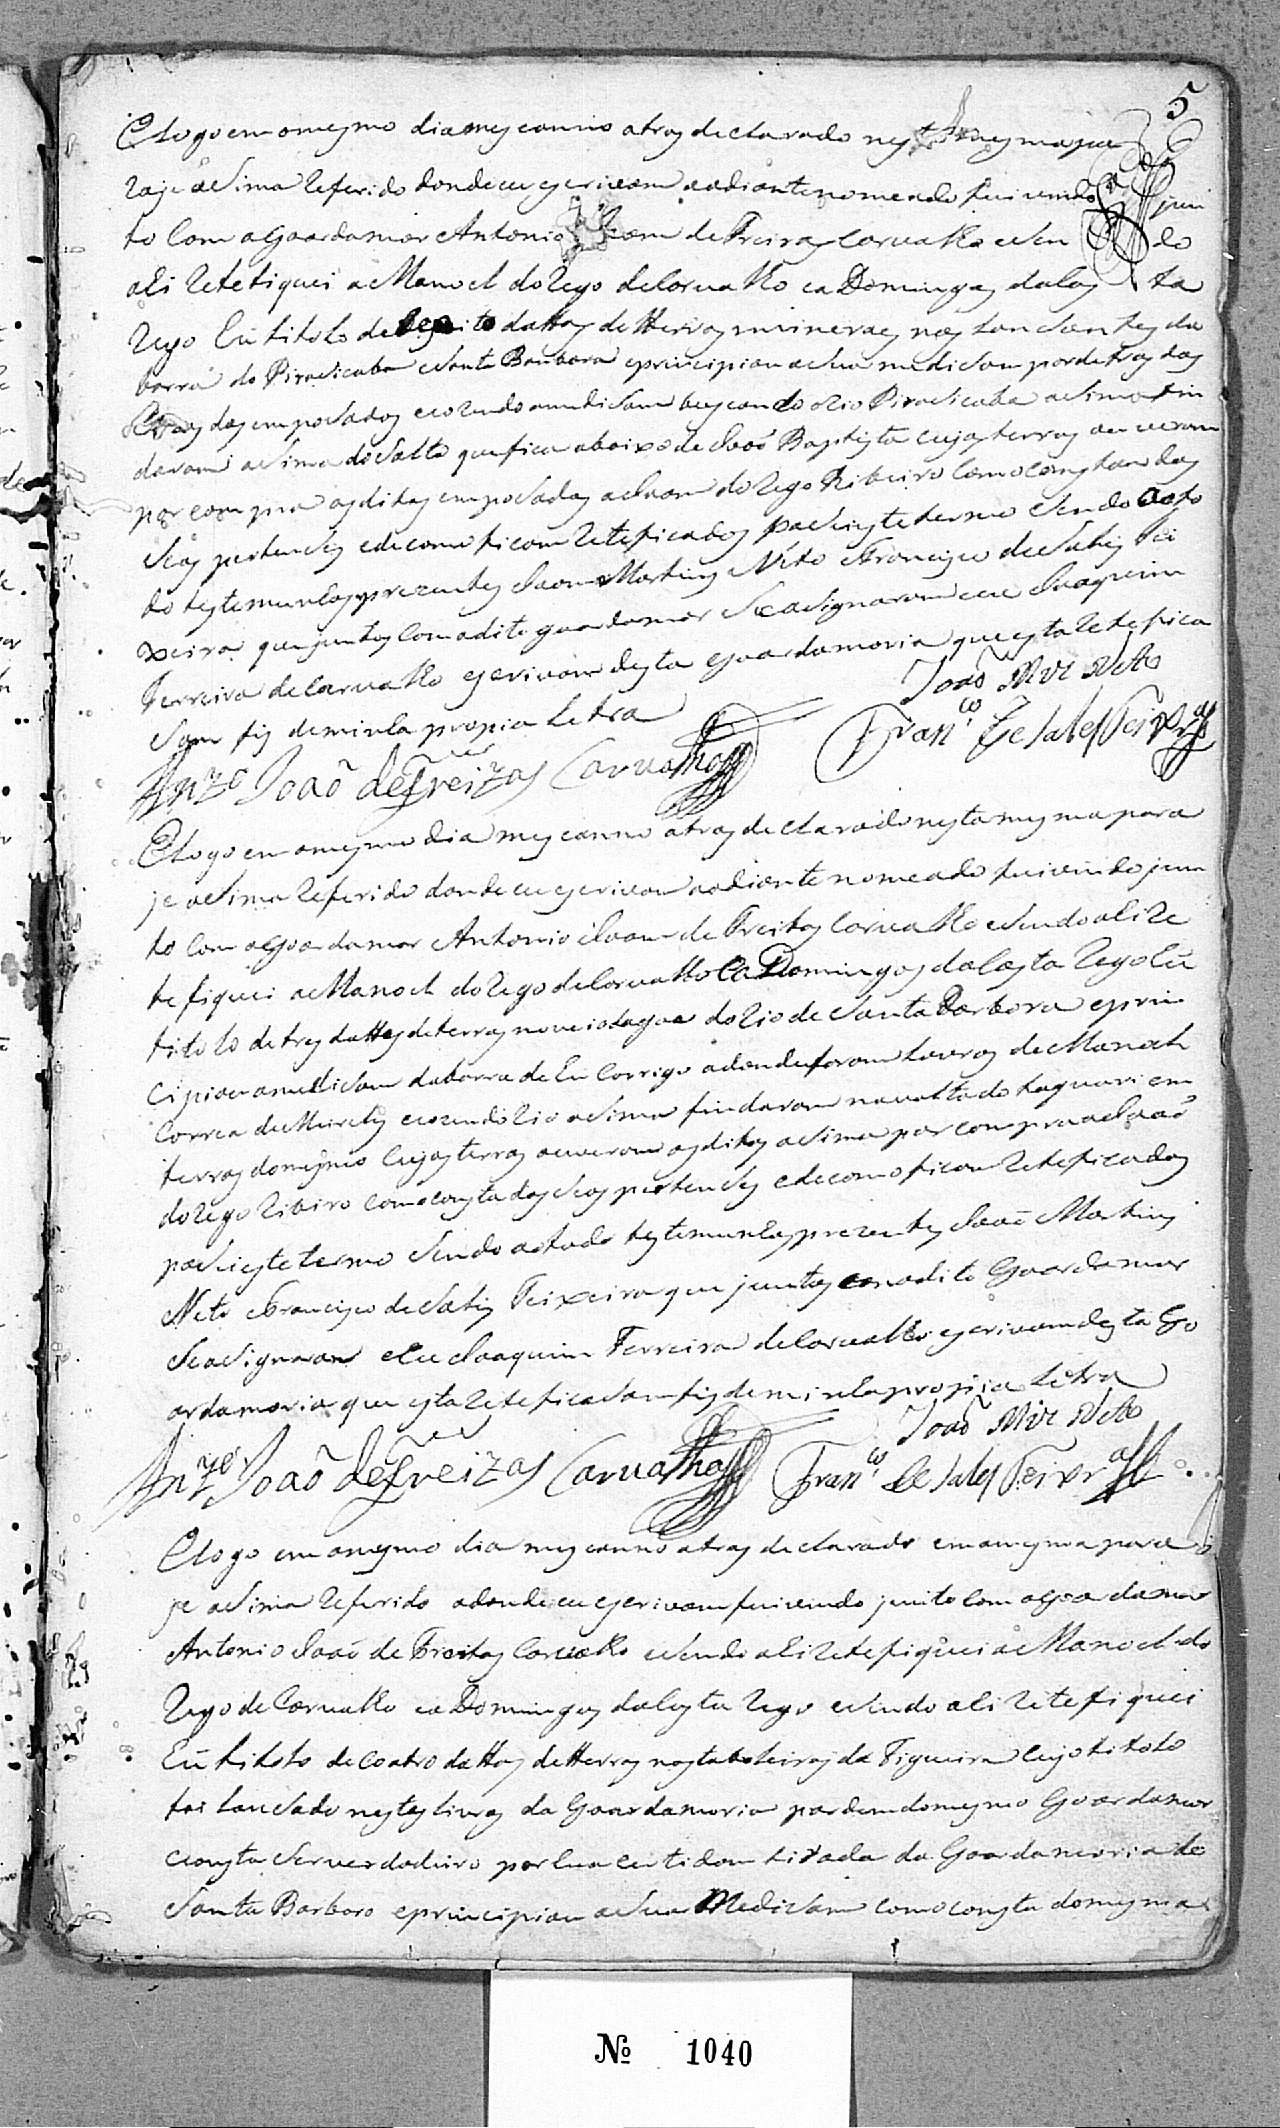 5
E logo em o mesmo dia mes e anno atras declarado nesta mesma pa
raje asima Referido donde eu escrivam aodiante nomeado fui vindo jun
to Com o Goardamor Antonio Joam de Freitas Carvalho e sen do
ali Retefiquei a Manoel do Rego de Carvalho e a Domingos da Cos ta
Rego hũ titolo de oito dattas de tterras minerais nos
barra do Pirasicaba e Santa Barbara e prinsipiou a sua medisam por detras das
Rosas dos emposados e corendo a medisam buscando o Rio Pirasicaba asima fin
daram asima do Salto que fica abaixo de João Baptista cujas terras ouveram
por compra os ditos emposados a Joam do Rego Ribeiro Como consta dos
seos pertenses e de como ficam Reteficados pasei este termo sendo a to
do testemunhas prezentes Joam Martins Neto e Francisco de Sales Tei
xeira que juntos Com o dito goardamor se asignaram e eu Joaquim
Ferreira de Carvalho escrivam desta goardamoria que esta Retefica
sam fiz de minha propia Letra
João Miz Neto
Anto João de Freitas Carvalho Franco de Sales Teixra
E logo em o mesmo dia mes e anno atras declarado nesta mesma para
je asima Referido donde eu escrivam aodiante nomeado fui vindo jun
to Com o Goardamor Antonio Joam de Freitas Carvalho e sendo ali Re
tefiquei a Manoel do Rego de Carvalho e a Domingos da Costa Rego hũ
titolo de tres dattas de terras no veio da goa do Rio de Santa Barbora e prin
cipiou a medisam da barra de hũ Corrigo adonde foram Lavras de Manoel
Correa de Meireles e corendo Rio asima findaram na volta do taquari em
terras do mesmo Cujas terras ouveram os ditos asima por compra a João
do Rego Ribeiro Como consta dos seos pertenses e de como ficam Reteficados
pasei este termo sendo a todo testemunhas prezentes João Martins
Neto e Francisco de Sales Teixeira que juntos com o dito Goardamor
se asignaram e eu Joaquim Ferreira de Carvalho escrivam desta Go
ardamoria que esta Reteficasam fiz de minha propia Letra
João Miz Neto
Anto João de Freitas Carvalho Franco de Sales Teixra
E logo em o mesmo dia mes e anno atras declarado em a mesma para
je asima Referido adonde eu escrivam fui vindo junto Com o Goardamor
Antonio João de Freitas Carvalho e sendo ali Retefiquei a Manoel do
Rego de Carvalho e a Domingos da Costa Rego e sendo ali Retefiquei
hũ titolo de coatro dattas de tterras nos taboleiros da Figueira Cujo titolo
foi lansado nestes livros da Goardamoria por dem do mesmo Goardamor
e consta ser verdadeiro por hua certidam tirada da Goardamoria de
Santa Barbora e prinsipiou a sua Medisam como consta do mesmo
No 1040